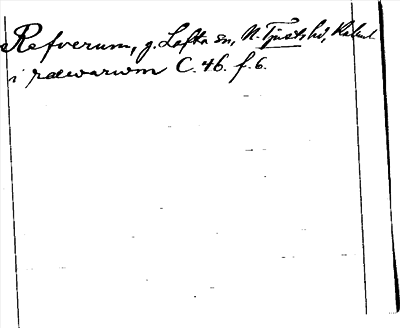 Refverum, g. Lofta sn, N. Tjusts hd, Kalm
i räwarwm C. 46. f. 6.